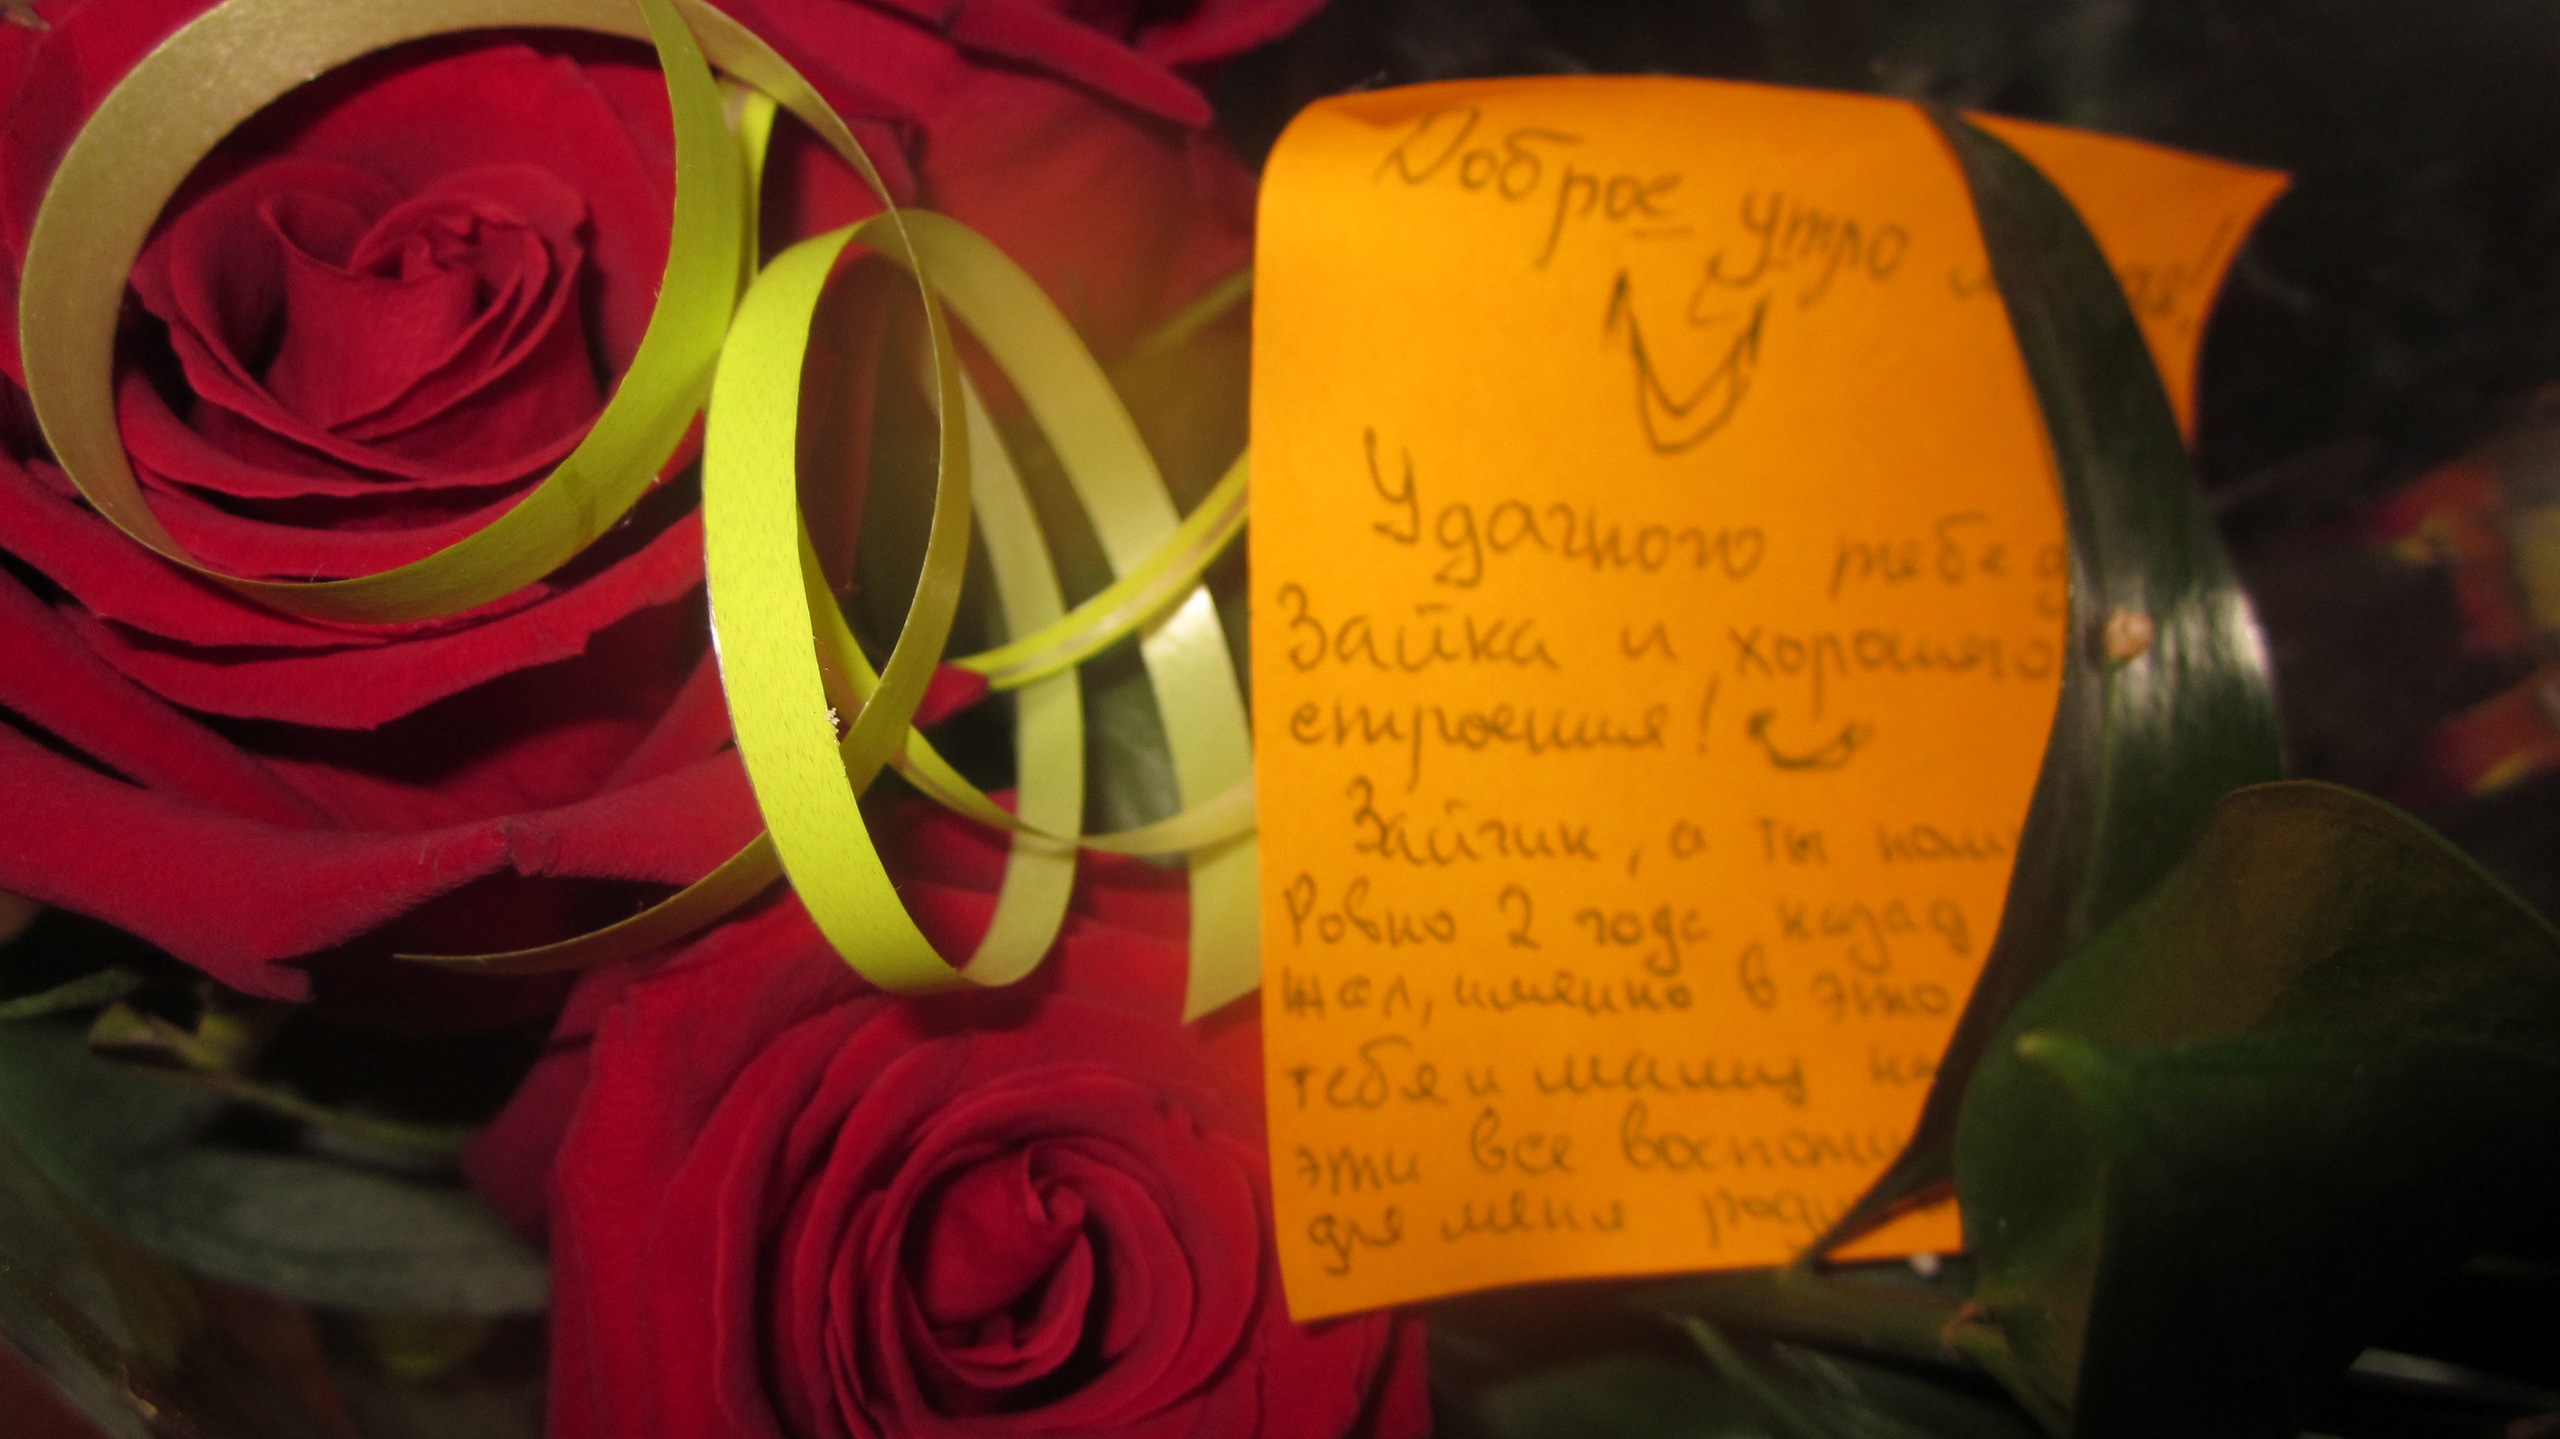 Доброе утро
Удачного тебе
Зайка и хорошего
строения!
Зайчик, а ты
Ровно 2 года назад
жал, именно в это
тебя и машу
эти все
для меня